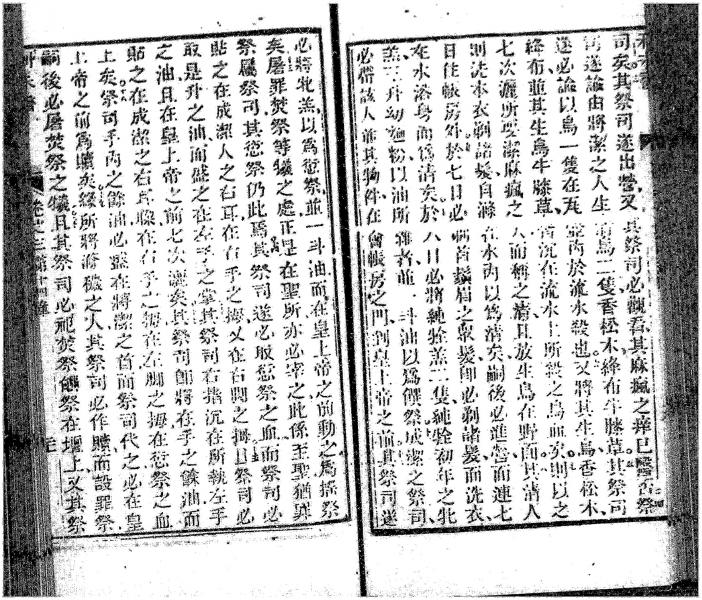 司矣其祭司遂出營又其祭司必觀看其麻瘋之痒已醫否祭
司遂諭由將潔之人生清鳥二隻香松木絳布牛膝草其祭司
遂必諭以鳥一隻在瓦壺內於流水殺也又將其生鳥香松木
絳布並其生鳥牛膝草皆沉在流水上所殺之鳥血矣則以之
七次灑所要潔麻瘋之人而稱之清且放生鳥在野而其清人
則洗本衣剃諸髮自滌在水內以為清矣嗣後必進營而連七
日住帳房外於七日必剃首鬚眉之眾髮即必剃諸髮而洗衣
在水浴身而為清矣於八日必將純牷羔二隻純牷初年之牝
羔三升幼麵粉以油所雜者並一斗油以為饌祭成潔之祭司
必帶該人並其物件在會帳房之門到皇上帝之前其祭司遂
必將牝羔以為愆祭並一斗油而在皇上帝之前動之為搖祭
矣屠罪焚祭等犧之處正是在聖所亦必宰之此係至聖猶罪
祭屬祭司其愆祭仍此焉其祭司遂必取愆祭之血而祭司必
貼之在成潔人之右耳在右手之拇又在右腳之拇且祭司必
取是升之油而盛之在左手之掌其祭司右指沉在所執左手
之油且在皇上帝之前七次灑矣其祭司即將在手之餘油而
貼之在成潔之右耳在右手之拇在左腳之拇在愆祭之血
上矣祭司手內之餘油必在將潔之首而祭司代之必在皇
上帝之前為贖矣緣所將滌穢之人其祭司必作贖而設罪祭
嗣後必屠焚祭之犧且其祭司必祀焚祭饌祭在壇上又其祭
第十四章